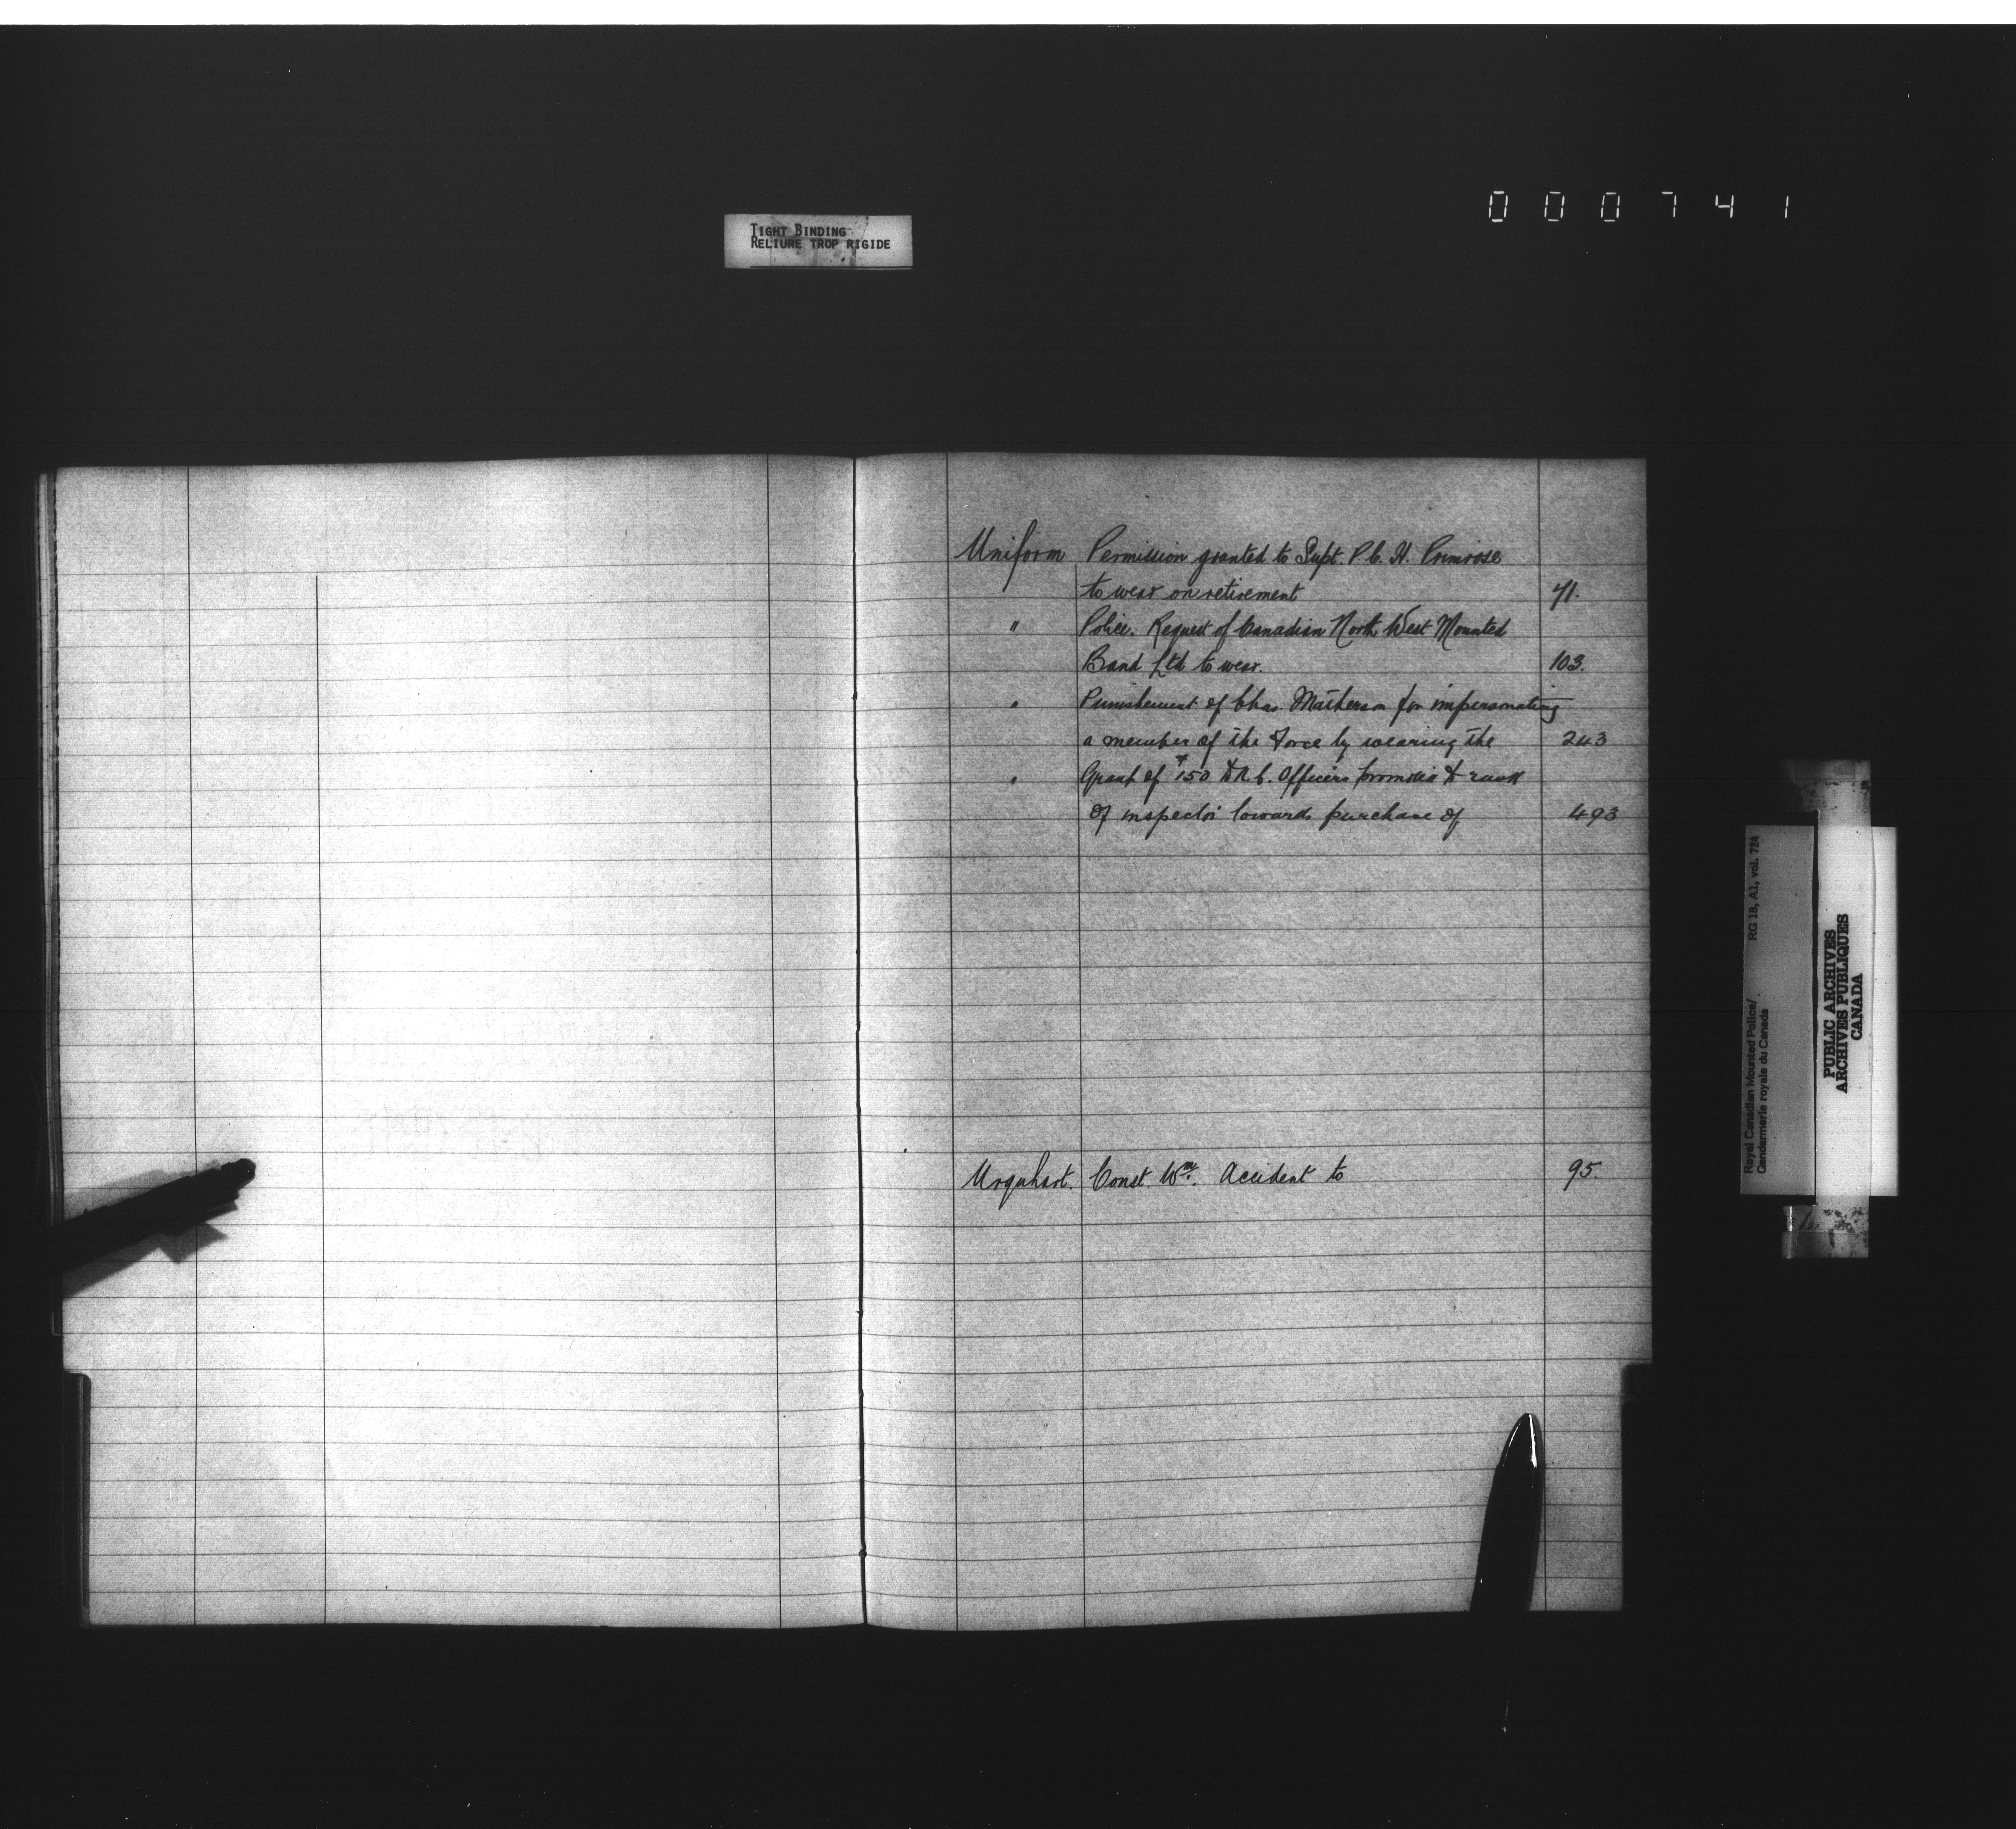 000741
TIGHT BINDING
RELIURE TROP RIGIDE
Uniform Permission granted to Supt. P. C. H. Primrose
to wear on retirement 41.
" Police. Request of Canadian North West Mounted
Band Ltd to wear. 103.
" Punishment of Chas. Matherson for impersonating
a member of the Force by wearing the 243
" Grant of $150 to N. C. Officers promotion to rank
of inspector towards purchase of 493
Urquhart. Const. Wm. Accident to 95
Royal Canadian Mounted Police/
Gendarmerie royale du Canada
RG 18, A1, vol. 724
PUBLIC ARCHIVES
ARCHIVES PUBLIQUES
CANADA